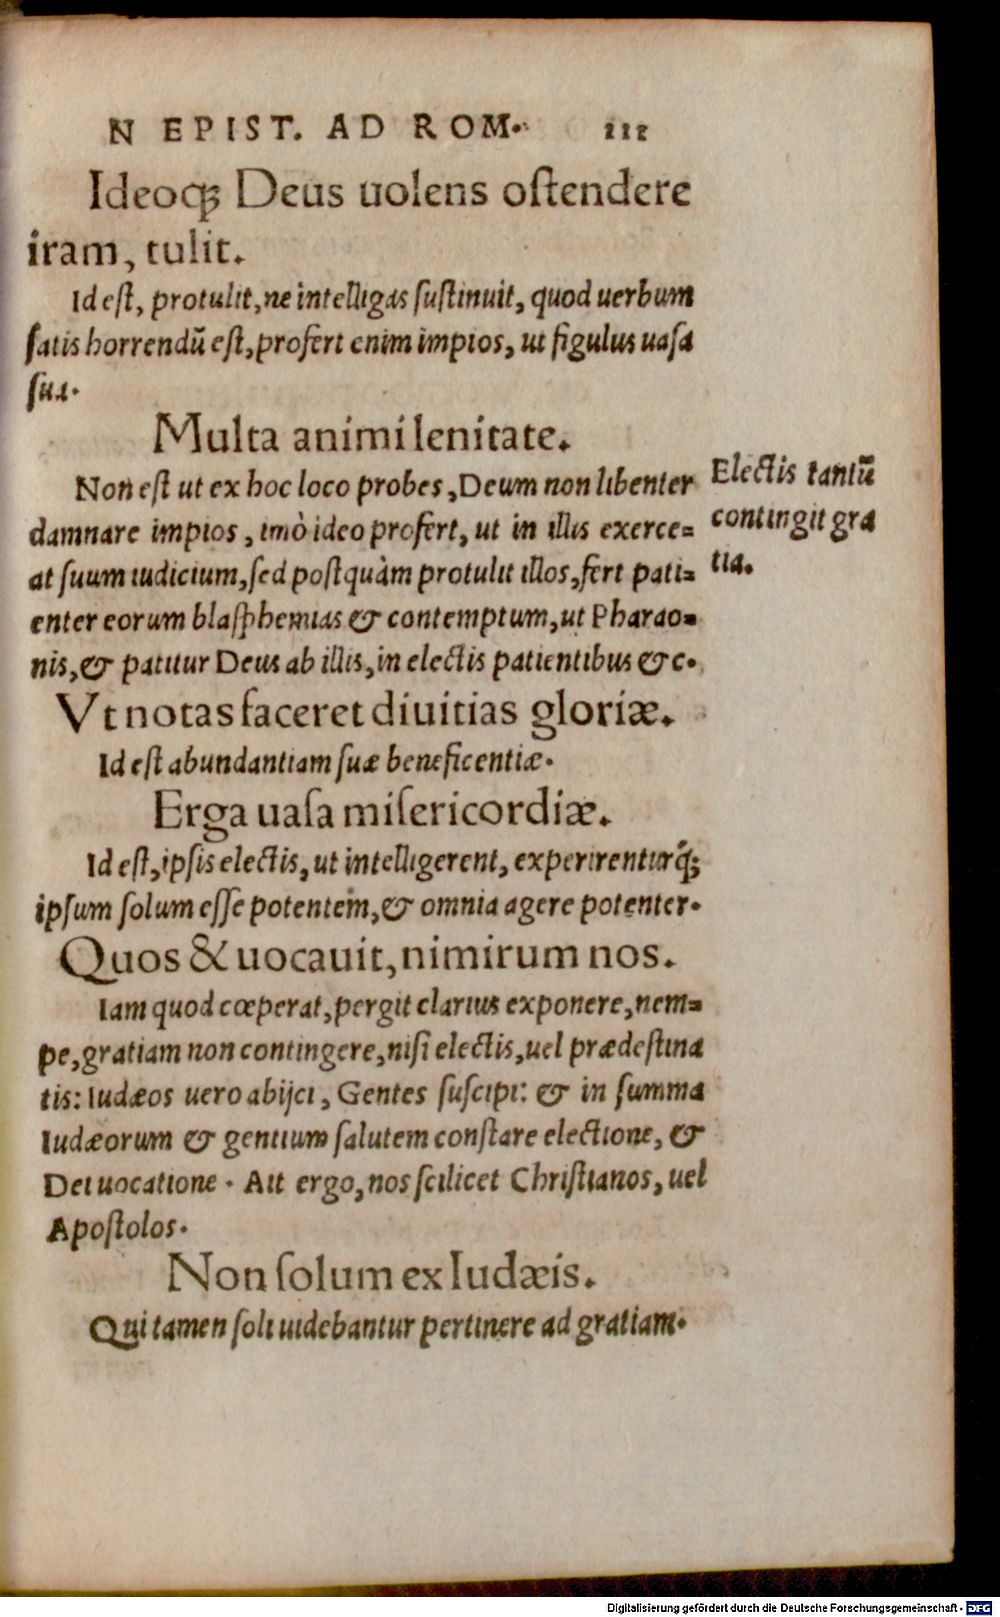 N EPIST. AD ROM. 111
Ideoq; Deus uolens oſtendere
iram, tulit.
Id eſt, protulit, ne intelligas ſuſtinuit, quod uerbum
ſatis horrendũ eſt, profert enim impios, ut figulus uaſa
ſua.
Multa animi lenitate.
Non eſt ut ex hoc loco probes, Deum non libenter
damnare impios, imò ideo profert, ut in illis exerce=
at ſuum iudicium, ſed poſtquàm protulit illos, fert pati=
enter eorum blaſphemias & contemptum, ut Pharao=
nis, & patitur Deus ab illis, in electis patientibus &c.
Electis tantũ
contingit gra
tia.
Vt notas faceret diuitias gloriæ.
Id eſt abundantiam ſuæ beneficentiæ.
Erga uaſa miſericordiæ.
Id eſt, ipſis electis, ut intelligerent, experirenturq́;
ipſum ſolum eſſe potentem, & omnia agere potenter.
Quos & uocauit, nimirum nos.
Iam quod cœperat, pergit clarius exponere, nem=
pe, gratiam non contingere, niſi electis, uel prædeſtina
tis: Iudæos uero abijci, Gentes ſuſcipi: & in ſumma
Iudæorum & gentium ſalutem conſtare electione, &
Dei uocatione. Ait ergo, nos ſcilicet Chriſtianos, uel
Apoſtolos.
Non ſolum ex Iudæis.
Qui tamen ſoli uidebantur pertinere ad gratiam.
Digitalisierung gefördert durch die Deutsche Forschungsgemeinschaft - DFG